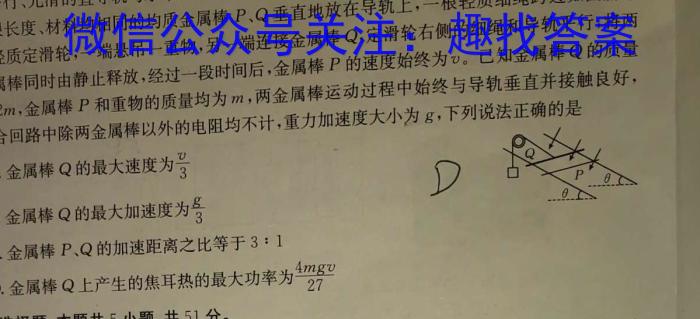 行、光滑的
长度、材 的均质金属棒 P、Q 垂直地放在导轨上,一根轻质细绳
微信公众号关注:趣找答案
轻质定滑轮,一端悬 一重物,另一端连接金属棒 Q,定滑轮右侧 导轨 将两
属棒同时由静止释放,经过一段时间后,金属棒 P 的速度始终为 v。已知金属棒 Q 的质量
2m,金属棒 P 和重物的质量均为 m,两金属棒运动过程中始终与导轨垂直并接触良好,
合回路中除两金属棒以外的电阻均不计,重力加速度大小为 g,下列说法正确的是
. 金属棒 Q 的最大速度为 v/3
. 金属棒 Q 的最大加速度为 g/3
. 金属棒 P、Q 的加速距离之比等于 3∶1
. 金属棒 Q 上产生的焦耳热的最大功率为 4mgv/27
D
Q
P
θ
θ
题:本题共 5 小题,共 51 分。